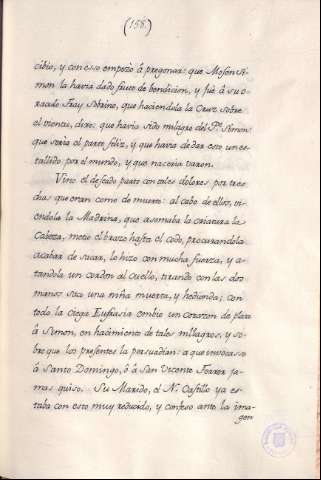 (158.)
cibio, y con esso empezò à pregonar: que Mosen Si-
mon la havia dado fruto de bendicion, y fuè à su O-
raculo Fray Sobrino, que haciendola la Cruz sobre
el vientre, dixo: que havia sido milagro del P.e Simon:
que seria el parto feliz, y que havia de dar esto un es-
tallido por el mundo, y que naceria varon.
Vino el deseado parto con tales dolores por tres
dias que eran como de muerte: al cabo de ellos, vi-
endola la Madrina, que asomaba la criatura la
Cabeza, metiò el brazo hasta el codo, procurandola
acabar de sacar, lo hizo con mucha fuerza, y a-
tandola un cordon al cuello, tirando con las dos
manos: sacò una niña muerta, y hedionda; con
todo la ciega Eufrasia embiò un corazon de plata
à Simon, en hacimiento de tales milagros, y so-
bre que los presentes la persuadian: a que invocase
à Santo Domingo, ò à San Vicente Ferrer ja-
mas quiso. Su Marido, el N. Castillo ya es-
taba con esto muy reducido, y confesò ante la ima-
gen